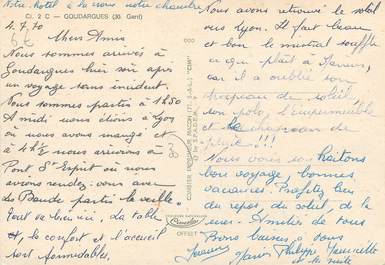 Notre hotel à la croix notre chambre
Cl. 2 C — GOUDARGUES (30. Gard)
4.7.70
Chers Amis
Nous sommes arrivés à
Goudargues hier soir après
un voyage sans incident.
Nous sommes partis à 1h30
A midi nous étions à Lyon
où nous avons mangé et
à 4h½ nous arrivions à
Pont St Esprit où nous
avons rendez-vous avec
la Bande partie la veille.
Tout va bien ici, la table
et, le confort et l'accueil
sont formidables.
COMBIER IMPRIMEUR MACON (IT. S.-&-L.) "CIM"
OFFSET
Nous avons retrouvé le soleil
vers Lyon. Il fait beau
et bon le mistral souffle
ce qui plaît à
car il a oublié son
chapeau de soleil,
son polo, l'imperméable
et le chapeau de
pluie !!!
Nous vous souhaitons
bon voyage, bonnes
vacances. Profitez bien
du repos, du soleil, de la
mer. Amitiés de tous
Bons baisers à vous
Philippe Henriette
et la suite